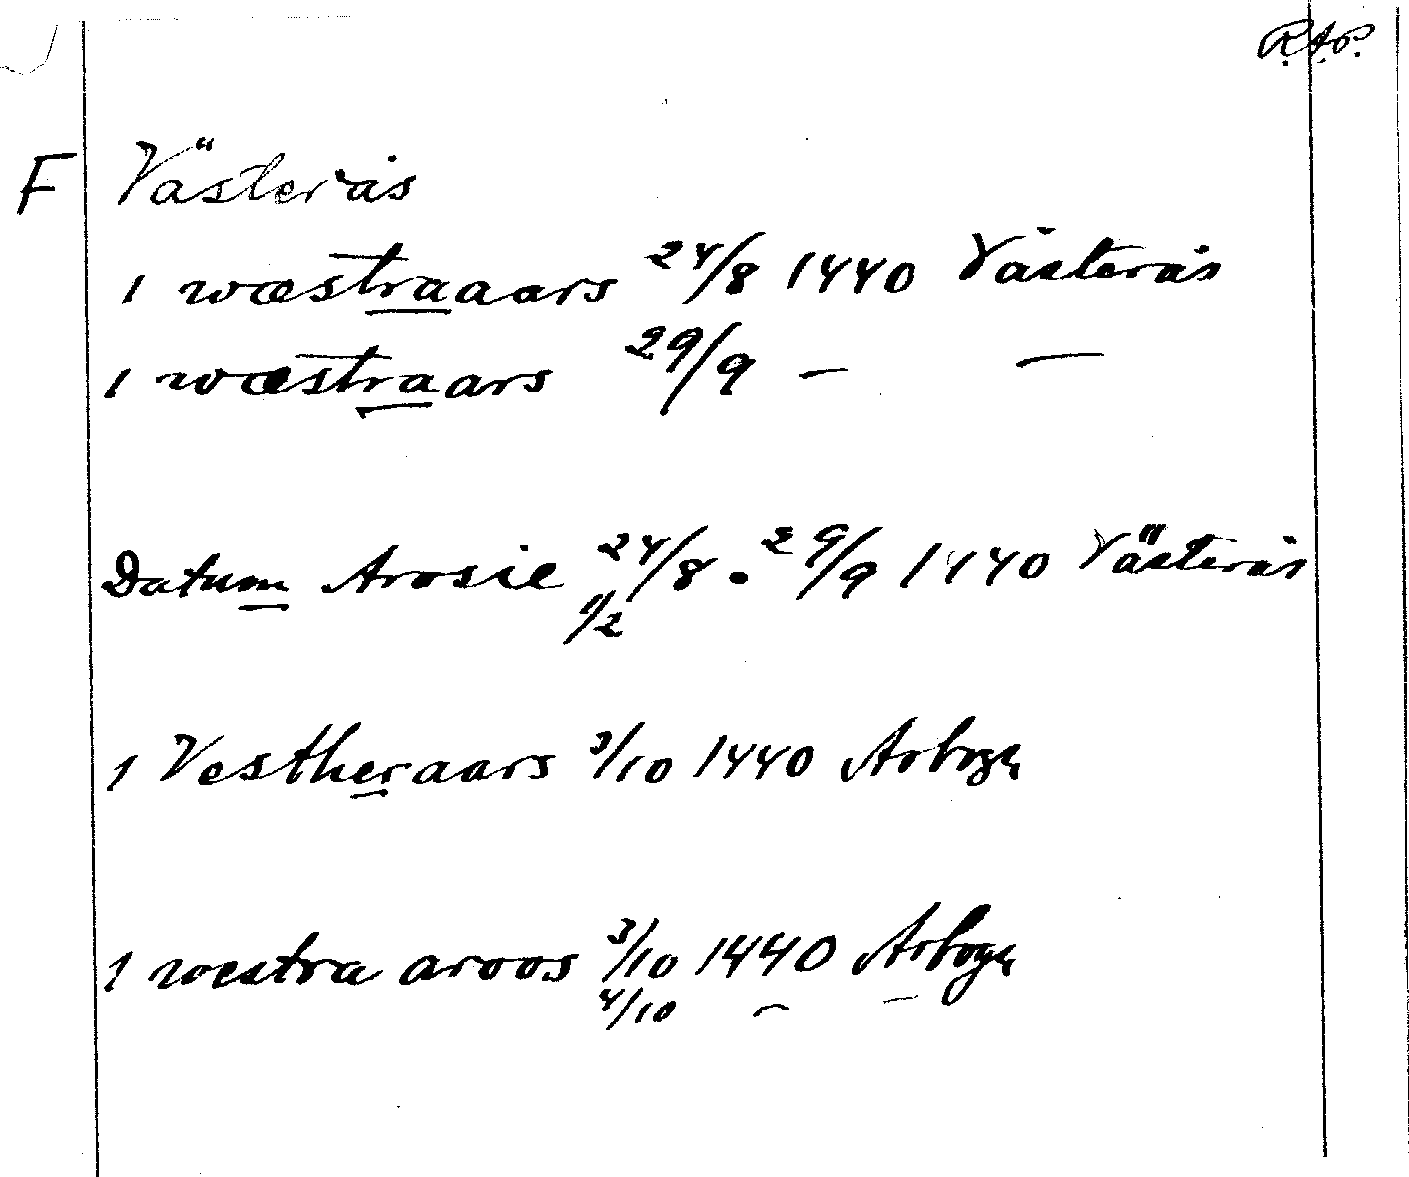 R.A.P.
F Västerås
1 wæstraaars 24/8 1440 Västerås
1 wæstraars 29/9 — —
Datum Arosie 24/8 . 29/9 1440 Västerås
1/2
1 Vestheraars 3/10 1440 Arboga
1 westra aroos 3/10 1440 Arboga
4/10 — —